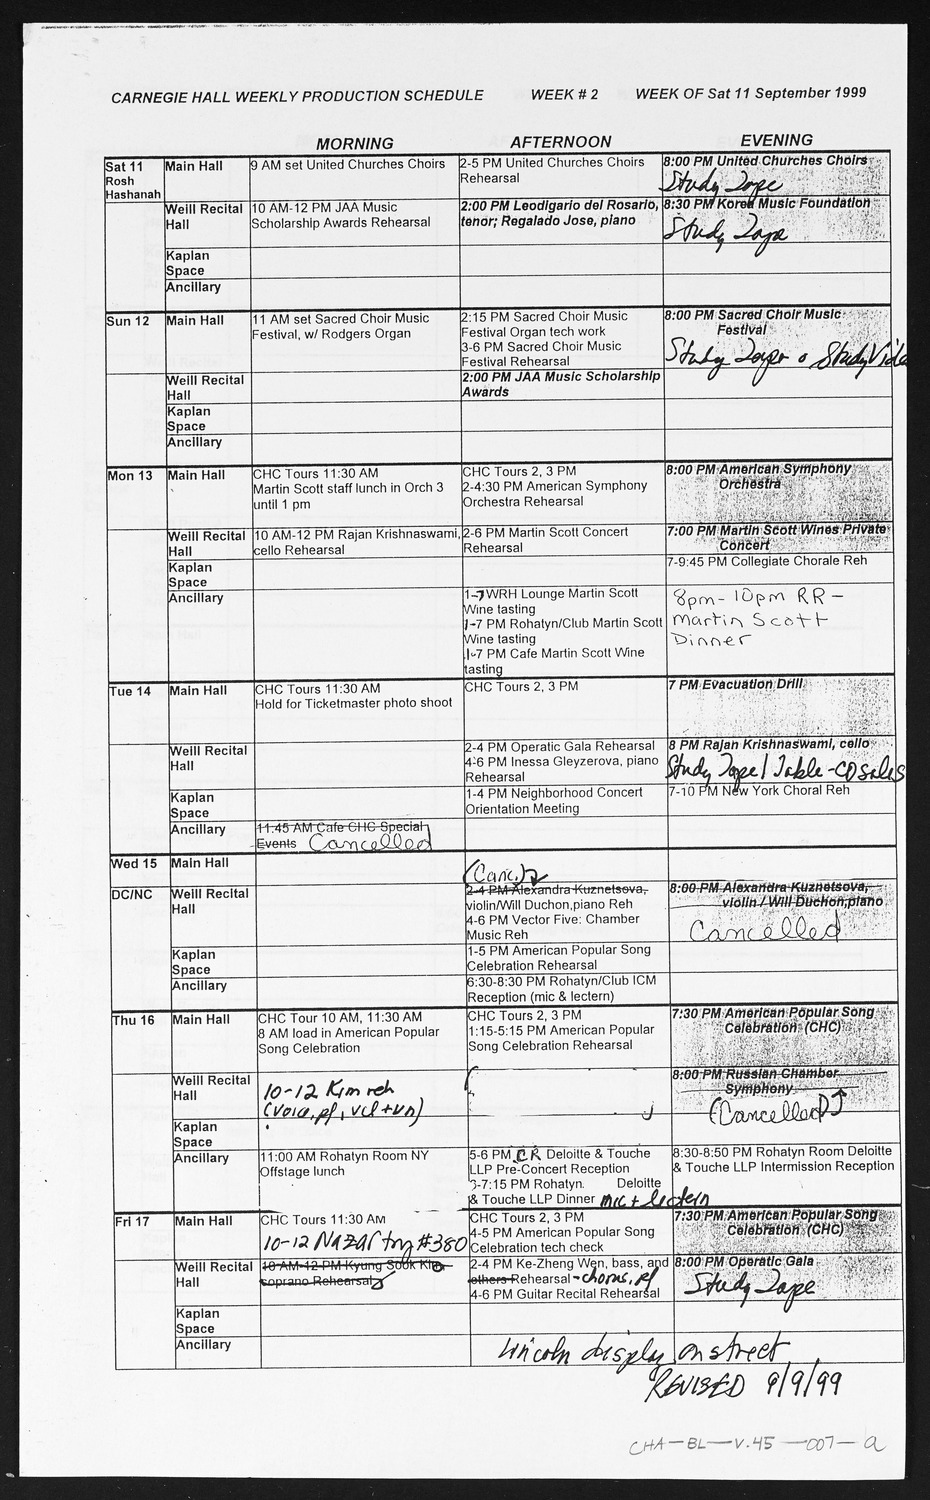 CARNEGIE HALL WEEKLY PRODUCTION SCHEDULE WEEK # 2 WEEK OF Sat 11 September 1999
MORNING AFTERNOON EVENING
Sat 11
Rosh
Hashanah
Main Hall
9 AM set United Churches Choirs
2-5 PM United Churches Choirs
Rehearsal
8:00 PM United Churches Choirs
Study Tape
Weill Recital
Hall
10 AM-12 PM JAA Music
Scholarship Awards Rehearsal
2:00 PM Leodigario del Rosario,
tenor; Regalado Jose, piano
8:30 PM Korea Music Foundation
Study Tape
Kaplan
Space
Ancillary
Sun 12
Main Hall
11 AM set Sacred Choir Music
Festival, w/ Rodgers Organ
2:15 PM Sacred Choir Music
Festival Organ tech work
3-6 PM Sacred Choir Music
Festival Rehearsal
8:00 PM Sacred Choir Music
Festival
Study Tape Study Video
Weill Recital
Hall
2:00 PM JAA Music Scholarship
Awards
Kaplan
Space
Ancillary
Mon 13
Main Hall
CHC Tours 11:30 AM
Martin Scott staff lunch in Orch 3
until 1 pm
CHC Tours 2, 3 PM
2-4:30 PM American Symphony
Orchestra Rehearsal
8:00 PM American Symphony
Orchestra
Weill Recital
Hall
10 AM-12 PM Rajan Krishnaswami,
cello Rehearsal
2-6 PM Martin Scott Concert
Rehearsal
7:00 PM Martin Scott Wines Private
Concert
Kaplan
Space
7-9:45 PM Collegiate Chorale Reh
Ancillary
1-7 WRH Lounge Martin Scott
Wine tasting
1-7 PM Rohatyn/Club Martin Scott
Wine tasting
1-7 PM Cafe Martin Scott Wine
tasting
8pm-10pm RR -
Martin Scott
Dinner
Tue 14
Main Hall
CHC Tours 11:30 AM
Hold for Ticketmaster photo shoot
CHC Tours 2, 3 PM
7 PM Evacuation Drill
Weill Recital
Hall
2-4 PM Operatic Gala Rehearsal
4-6 PM Inessa Gleyzerova, piano
Rehearsal
8 PM Rajan Krishnaswami, cello
Study Tape / Table - CD sales
Kaplan
Space
1-4 PM Neighborhood Concert
Orientation Meeting
7-10 PM New York Choral Reh
Ancillary
11:45 AM Cafe CHC Special
Events Cancelled
Wed 15
Main Hall
(Canc.)
DC/NC
Weill Recital
Hall
2-4 PM Alexandra Kuznetsova,
violin/Will Duchon,piano Reh
4-6 PM Vector Five: Chamber
Music Reh
8:00 PM Alexandra Kuznetsova,
violin / Will Duchon,piano
Cancelled
Kaplan
Space
1-5 PM American Popular Song
Celebration Rehearsal
Ancillary
6:30-8:30 PM Rohatyn/Club ICM
Reception (mic & lectern)
Thu 16
Main Hall
CHC Tour 10 AM, 11:30 AM
8 AM load in American Popular
Song Celebration
CHC Tours 2, 3 PM
1:15-5:15 PM American Popular
Song Celebration Rehearsal
7:30 PM American Popular Song
Celebration (CHC)
Weill Recital
Hall
10-12 Kim reh
(voice, pf, vcl + vn)
8:00 PM Russian Chamber
Symphony
(Cancelled)
Kaplan
Space
Ancillary
11:00 AM Rohatyn Room NY
Offstage lunch
5-6 PM CR Deloitte & Touche
LLP Pre-Concert Reception
-7:15 PM Rohatyn. Deloitte
& Touche LLP Dinner mic + lectern
8:30-8:50 PM Rohatyn Room Deloitte
& Touche LLP Intermission Reception
Fri 17
Main Hall
CHC Tours 11:30 AM
10-12 Nazar try #380
CHC Tours 2, 3 PM
4-5 PM American Popular Song
Celebration tech check
7:30 PM American Popular Song
Celebration (CHC)
Weill Recital
Hall
10 AM-12 PM Kyung Sook Kim
soprano Rehearsal
2-4 PM Ke-Zheng Wen, bass, and
others Rehearsal - chorus, pf
4-6 PM Guitar Recital Rehearsal
8:00 PM Operatic Gala
Study Tape
Kaplan
Space
Ancillary
Lincoln display on street
REVISED 9/9/99
CHA-BL-V.45-007-a